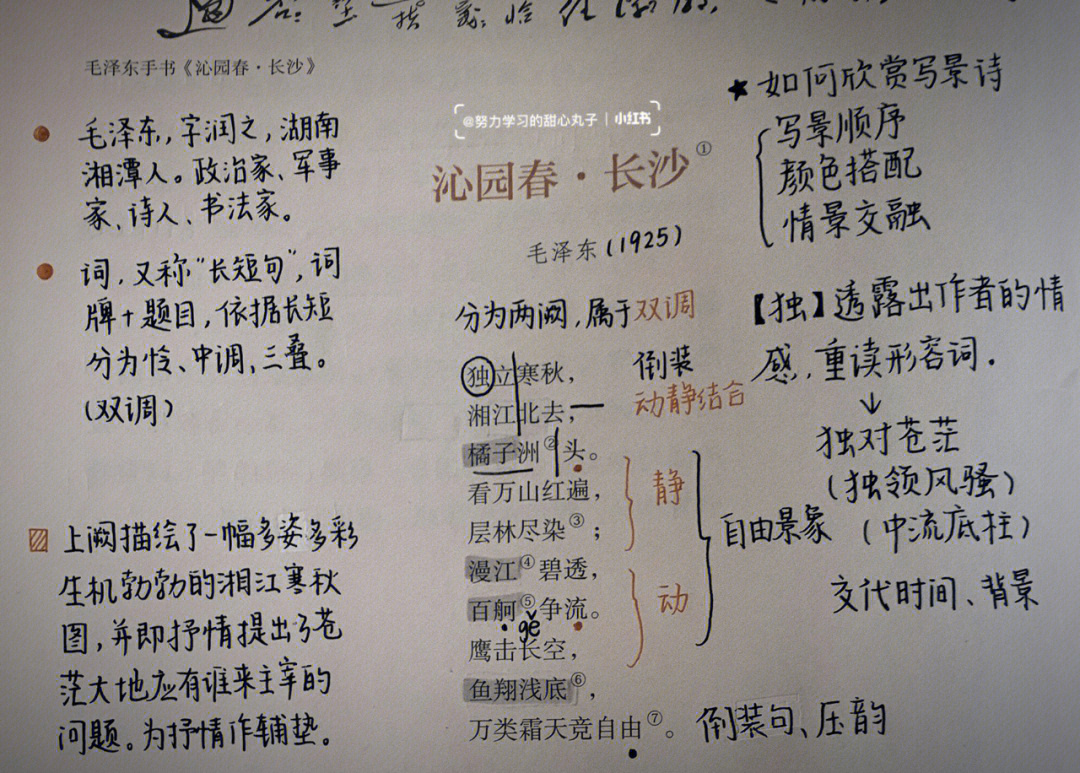 毛泽东手书《沁园春·长沙》
毛泽东,字润之,湖南
湘潭人。政治家、军事
家、诗人、书法家。
词,又称“长短句”,词
牌+题目,依据长短
分为怜、中调,三叠。
(双调)
上阙描绘了一幅多姿多彩
生机勃勃的湘江寒秋
图,并即抒情提出了苍
茫大地应有谁来主宰的
问题。为抒情作辅垫。
@努力学习的甜心丸子 | 小红书
沁园春·长沙①
毛泽东(1925)
分为两阙,属于双调
独立寒秋,
湘江北去,
橘子洲②头。
看万山红遍,
层林尽染③;
漫江④碧透,
百舸⑤争流。
gě
鹰击长空,
鱼翔浅底⑥,
万类霜天竞自由⑦。
倒装
动静结合
静
动
自由景象
倒装句、压韵
★如何欣赏写景诗
写景顺序
颜色搭配
情景交融
【独】透露出作者的情
感,重读形容词.
↓
独对苍茫
(独领风骚)
(中流底柱)
交代时间、背景